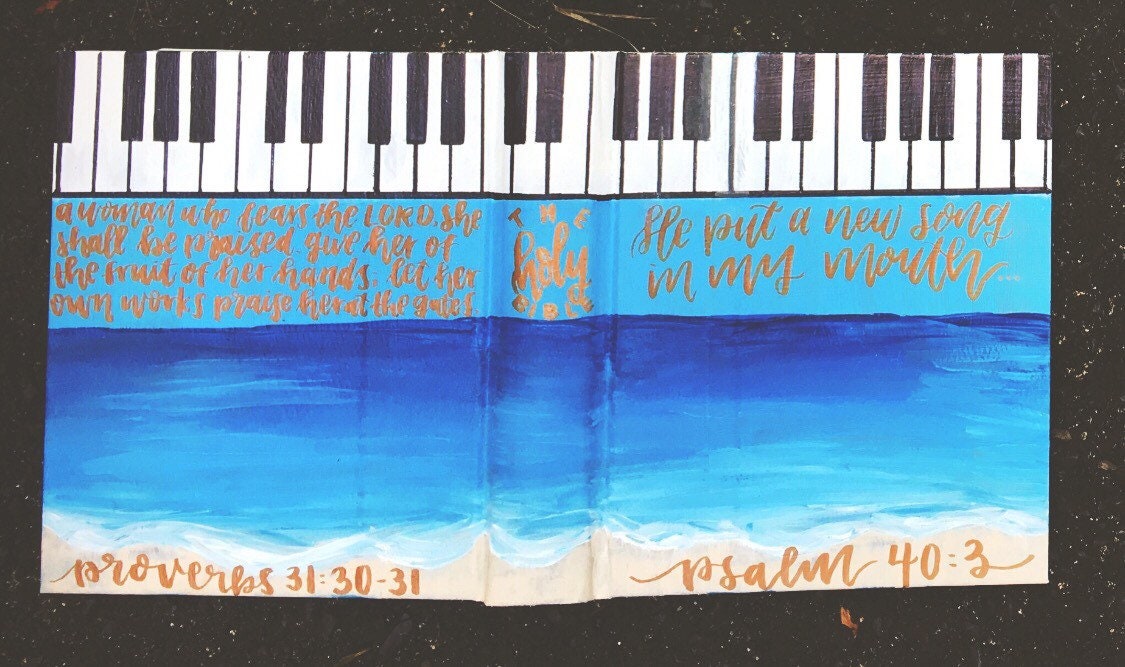 a woman who fears the LORD, she
shall be praised. give her of
the fruit of her hands, let her
own works praise her at the gates.
proverbs 31:30-31
THE
holy
BIBLE
He put a new song
in my mouth...
psalm 40:3